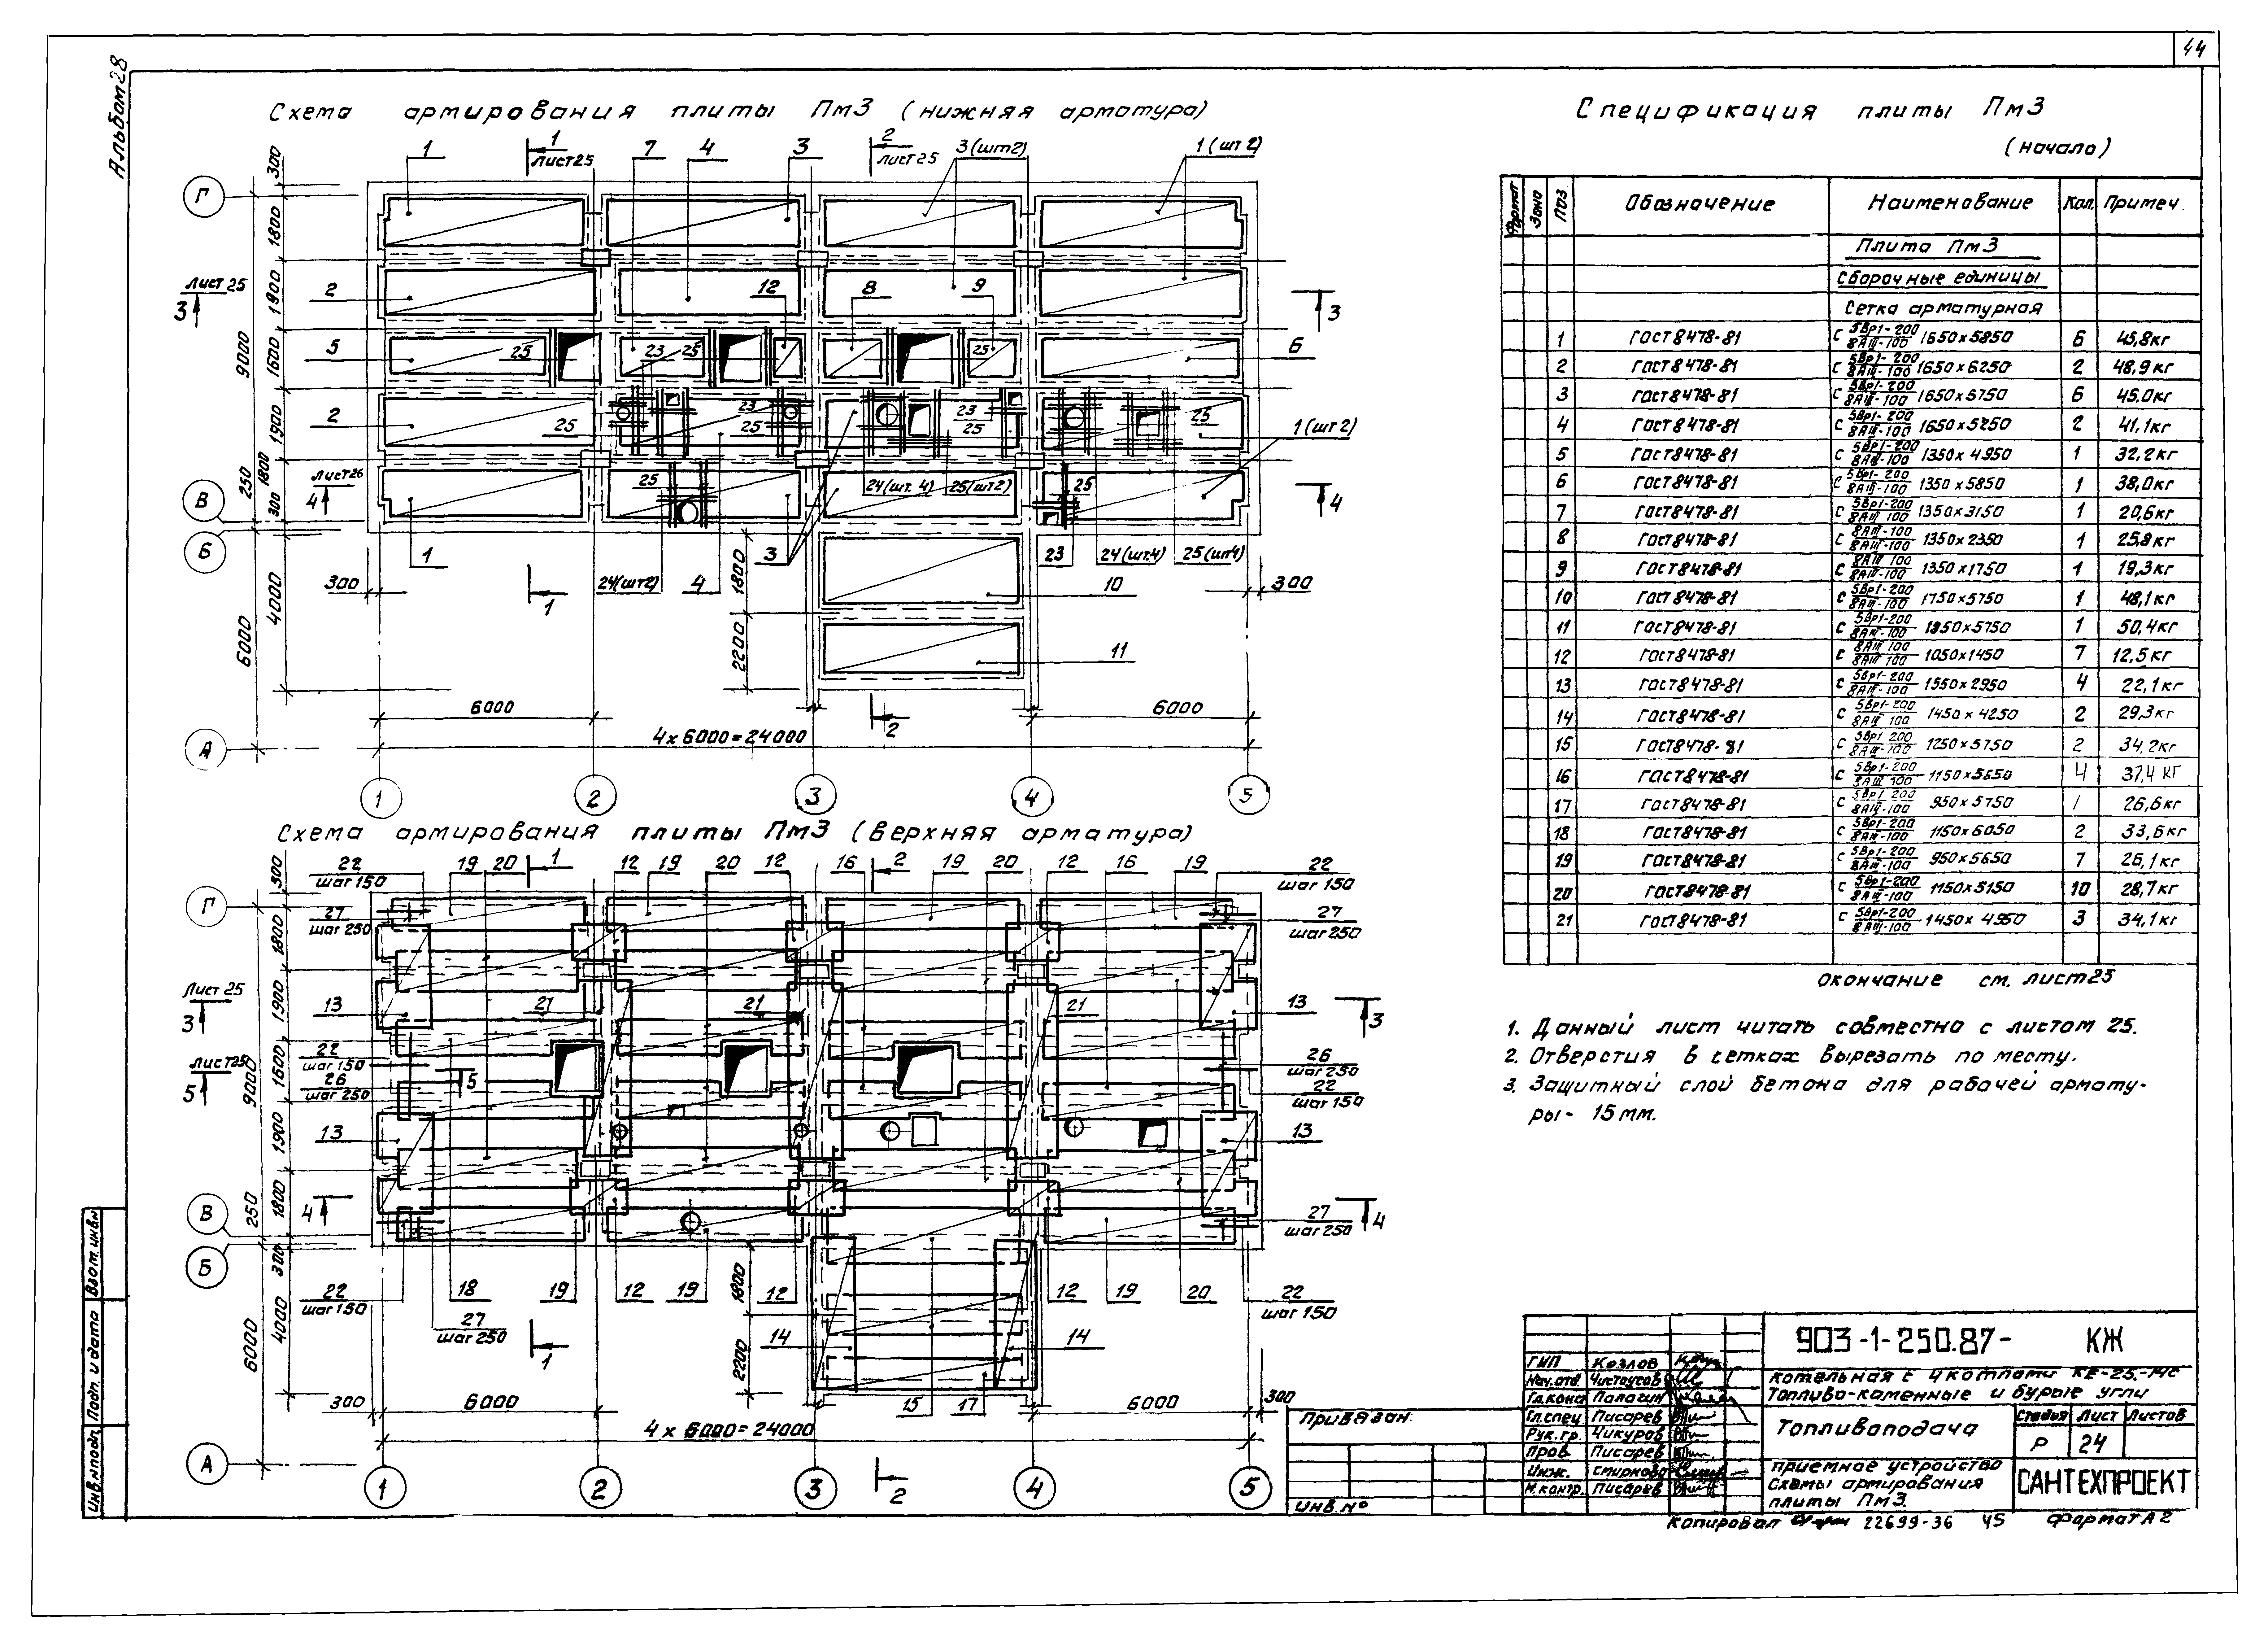 44
Альбом 28
Схема армирования плиты Пм3 (нижняя арматура)
1 1 Лист 25 7 4 3 2 Лист 25 3 (шт2) 1 (шт 2)
Г
300
1800
Лист 25
3
2
1900
12 8 9
3
9000
5
1600
25 23 25 25
6
2
1900
25 23 25 23 25 25
1 (шт 2)
250
1800
Лист 26
4
300
25 24 (шт. 4) 25 (шт2) 25
4
В
Б
1 24(шт2) 4 3 23 24 (шт.4) 25 (шт4)
300 1 1800 10 300
4000
6000
2200 11
6000 2 6000
4 х 6000 = 24000
А
1 2 3 4 5
Схема армирования плиты Пм3 (верхняя арматура)
22 19 20 1 12 19 20 12 16 2 19 20 12 16 19 22
шаг 150 шаг 150
300
Г
27
шаг 250
27
шаг 250
1800
Лист 25
3
13 21 21 21 13
3
1900
22
шаг 150
26
шаг 250
Лист 25
5
5
26
шаг 250
22
шаг 150
9000
1600
1900
13 13
250
1800
4
27
шаг 250
4
В
Б
300
22
шаг 150
18 19 12 19 12 1800 12 19 20 22
шаг 150
27
шаг 250
4000
6000
1 14 14
2200
300 6000 15 17 6000 300
4 х 6000 = 24000
А
1 2 3 2 4 5
Спецификация плиты Пм3
(начало)
Формат Зона Поз Обозначение Наименование Кол. Примеч.
Плита Пм3
Сборочные единицы
Сетка арматурная
1 ГОСТ 8478-81 С 5Вр1-200/8АIII-100 1650×5850 6 45,8кг
2 ГОСТ 8478-81 С 5Вр1-200/8АIII-100 1650×6250 2 48,9кг
3 ГОСТ 8478-81 С 5Вр1-200/8АIII-100 1650×5750 6 45.0кг
4 ГОСТ 8478-81 С 5Вр1-200/8АIII-100 1650×5250 2 41,1кг
5 ГОСТ 8478-81 С 5Вр1-200/8АIII-100 1350×4950 1 32,2кг
6 ГОСТ 8478-81 С 5Вр1-200/8АIII-100 1350×5850 1 38,0кг
7 ГОСТ 8478-81 С 5Вр1-200/8АIII-100 1350×3150 1 20,6кг
8 ГОСТ 8478-81 С 8АIII-100/8АIII-100 1350×2350 1 25,8кг
9 ГОСТ 8478-81 С 8АIII 100/8АIII-100 1350×1750 1 19,3кг
10 ГОСТ 8478-81 С 5Вр1-200/8АIII-100 1750×5750 1 48,1кг
11 ГОСТ 8478-81 С 5Вр1-200/8АIII-100 1850×5750 1 50,4кг
12 ГОСТ 8478-81 С 8АIII 100/8АIII 100 1050×1450 7 12,5кг
13 ГОСТ 8478-81 С 5Вр1-200/8АIII-100 1550×2950 4 22,1кг
14 ГОСТ 8478-81 С 5Вр1-200/8АIII 100 1450×4250 2 29,3кг
15 ГОСТ 8478-81 С 5Вр1 200/8АIII-100 1250×5750 2 34,2кг
16 ГОСТ 8478-81 С 5Вр1-200/8АIII 100 1150×5650 4 37,4 кг
17 ГОСТ 8478-81 С 5Вр1-200/8АIII-100 950×5750 1 26,6кг
18 ГОСТ 8478-81 С 5Вр1-200/8АIII-100 1150×6050 2 33,6кг
19 ГОСТ 8478-81 С 5Вр1-200/8АIII-100 950×5650 7 26,1кг
20 ГОСТ 8478-81 С 5Вр1-200/8АIII-100 1150×5150 10 28,7кг
21 ГОСТ 8478-81 С 5Вр1-200/8АIII-100 1450×4950 3 34,1кг
окончание см. лист 25
1. Данный лист читать совместно с листом 25.
2. Отверстия в сетках вырезать по месту.
3. Защитный слой бетона для рабочей армату-
ры - 15 мм.
903-1-250.87- КЖ
Котельная с 4 котлами КЕ-25-14с
Топливо-каменные и бурые угли
Топливоподача
Стадия Лист Листов
Р 24
Приемное устройство
Схемы армирования
плиты Пм3.
САНТЕХПРОЕКТ
ГИП Козлов
Нач.отд. Чистоусов
Гл.спец Писарев
Рук.гр. Чикуров
Пров. Писарев
Инж. Смирнова
Н.контр. Писарев
Привязан:
Инв.№
Копировал 22699-36 45 Формат А2
Взам. инв.№
Подп. и дата
Инв.№подл.